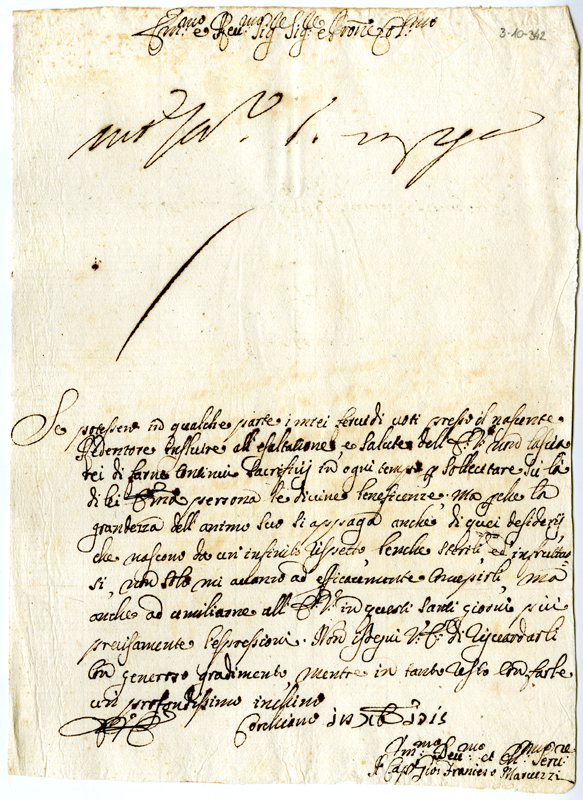 Em.mo e Reu.mo Sig.re Sig.re e Prone Col.mo
3-10-342
Se potessero in qualche parte i miei feruidi uoti presso il nascente
Redentore influire all'esaltatione, e salute dell'E.V. non lascia
rei di farne continui sacrifitij in ogni tempo p sollecitare su la
di lei Em.ma persona le diuine beneficenze. Ma perche la
grandezza dell'animo suo si appaga anche di quei desiderij
che nascono da un'infinito rispetto benche sterili, ed infruttuo=
si, non solo mi auanzo ad efficacemente concepirli, ma
anche ad umiliarne all'E.V. in questi santi giorni più
precisamente l'espressioni. Non isdegni V.E. di riguardarli
con generoso gradimento mentre in tanto resto con farle
un profondissimo inchino
Corchiano
Um.mo Deu.mo et Obl.mo Seru.re
Gio: Francesco Marcuzzi